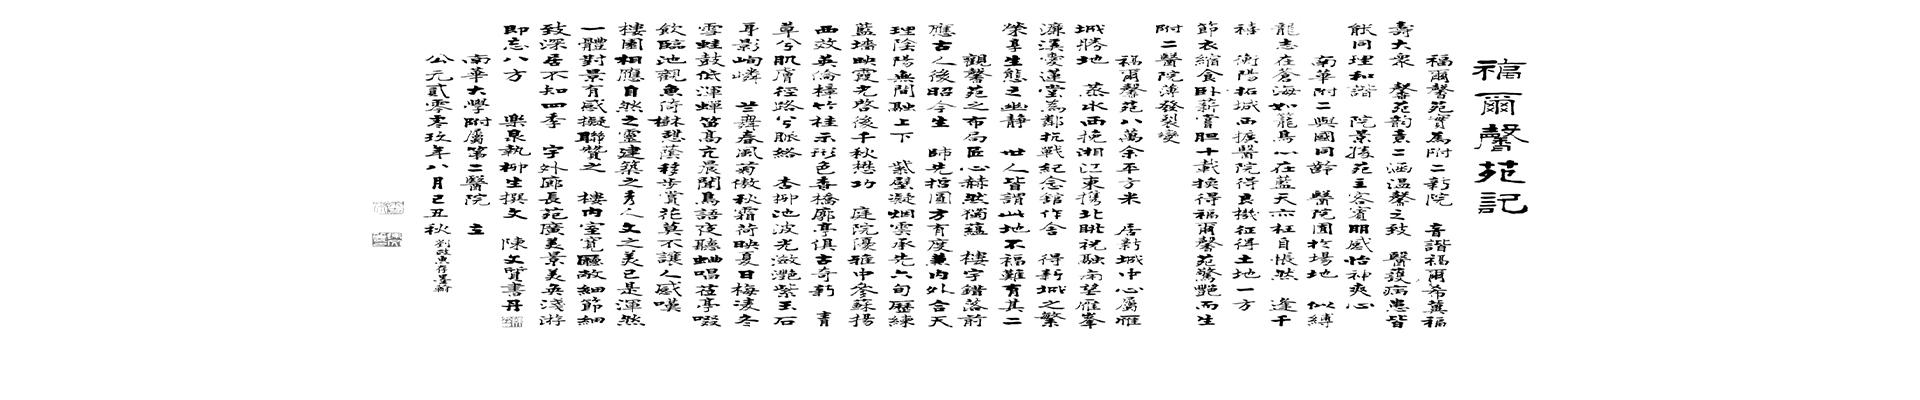 福爾馨苑記
福爾馨苑實為附二新院　音諧福爾希冀福
壽大眾　馨苑韵意二函溫馨之致　醫護病患皆
能同理和諧　院景孫苑主客賓朋感怡神爽心
南華附二與國同齡　醫院囿扵場地　似縛
龍志在蒼海如籠鳥心在藍天亦枉自悵然　逢千
禧　衡陽拓城西擴醫院得良機征得土地一方
節衣縮食臥薪嘗胆十載換得福爾馨苑驚艷而生
附二醫院薄發裂變
福爾馨苑八萬余平方米　居新城中心屬雁
城勝地　蒸水西挽湘江東携北眺祝融南望雁峯
濂溪愛蓮堂為鄰抗戰紀念館作舍　得新城之繁
榮享生態之幽静　世人皆謂此地不福難有其二
觀馨苑之布局匠心赫然獨蘊　樓宇錯落前
應古人後昭今生　師先哲圓方有度兼内外合天
理陰陽無間融上下　紫壁凝烟雲承先六旬歷練
藍墻映霞光啓後千秋懋功　庭院優雅中參蘇揚
西效英倫樟竹桂示形色香橋廓亭俱古奇新　青
草兮肌膚径路兮脈絡　杏柳池波光瀲灧紫玉石
身影峋嶙　芒舞春風菊傲秋霜荷映夏日梅凌冬
雪蛙鼓低渾蟬笛高亢晨聞鳥語夜聽蛐唱茬亭啜
飲臨池觀魚倚樹憩蔭移步賞花莫不讓人感嘆
樓園相應自然之靈建築之秀人文之美已是渾然
一體對景有感擬聯贊之　樓内室寬廳敞細節細
致深居不知四季　宇外廊長苑廣美景美奐淺游
即忘八方　樂泉執柳生撰文　陳文質書丹
南華大學附屬第二醫院　立
公元貳零零玖年八月己丑秋